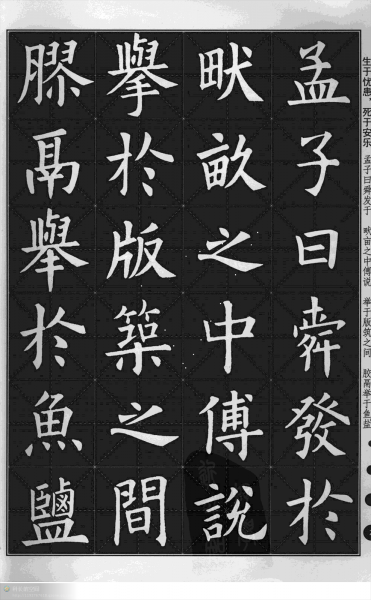 生于忧患，死于安乐 孟子曰舜发于 畎亩之中傅说 举于版筑之间 胶鬲举于鱼盐
孟子曰舜發於
畎畝之中傅說
舉於版築之間
膠鬲舉於魚鹽